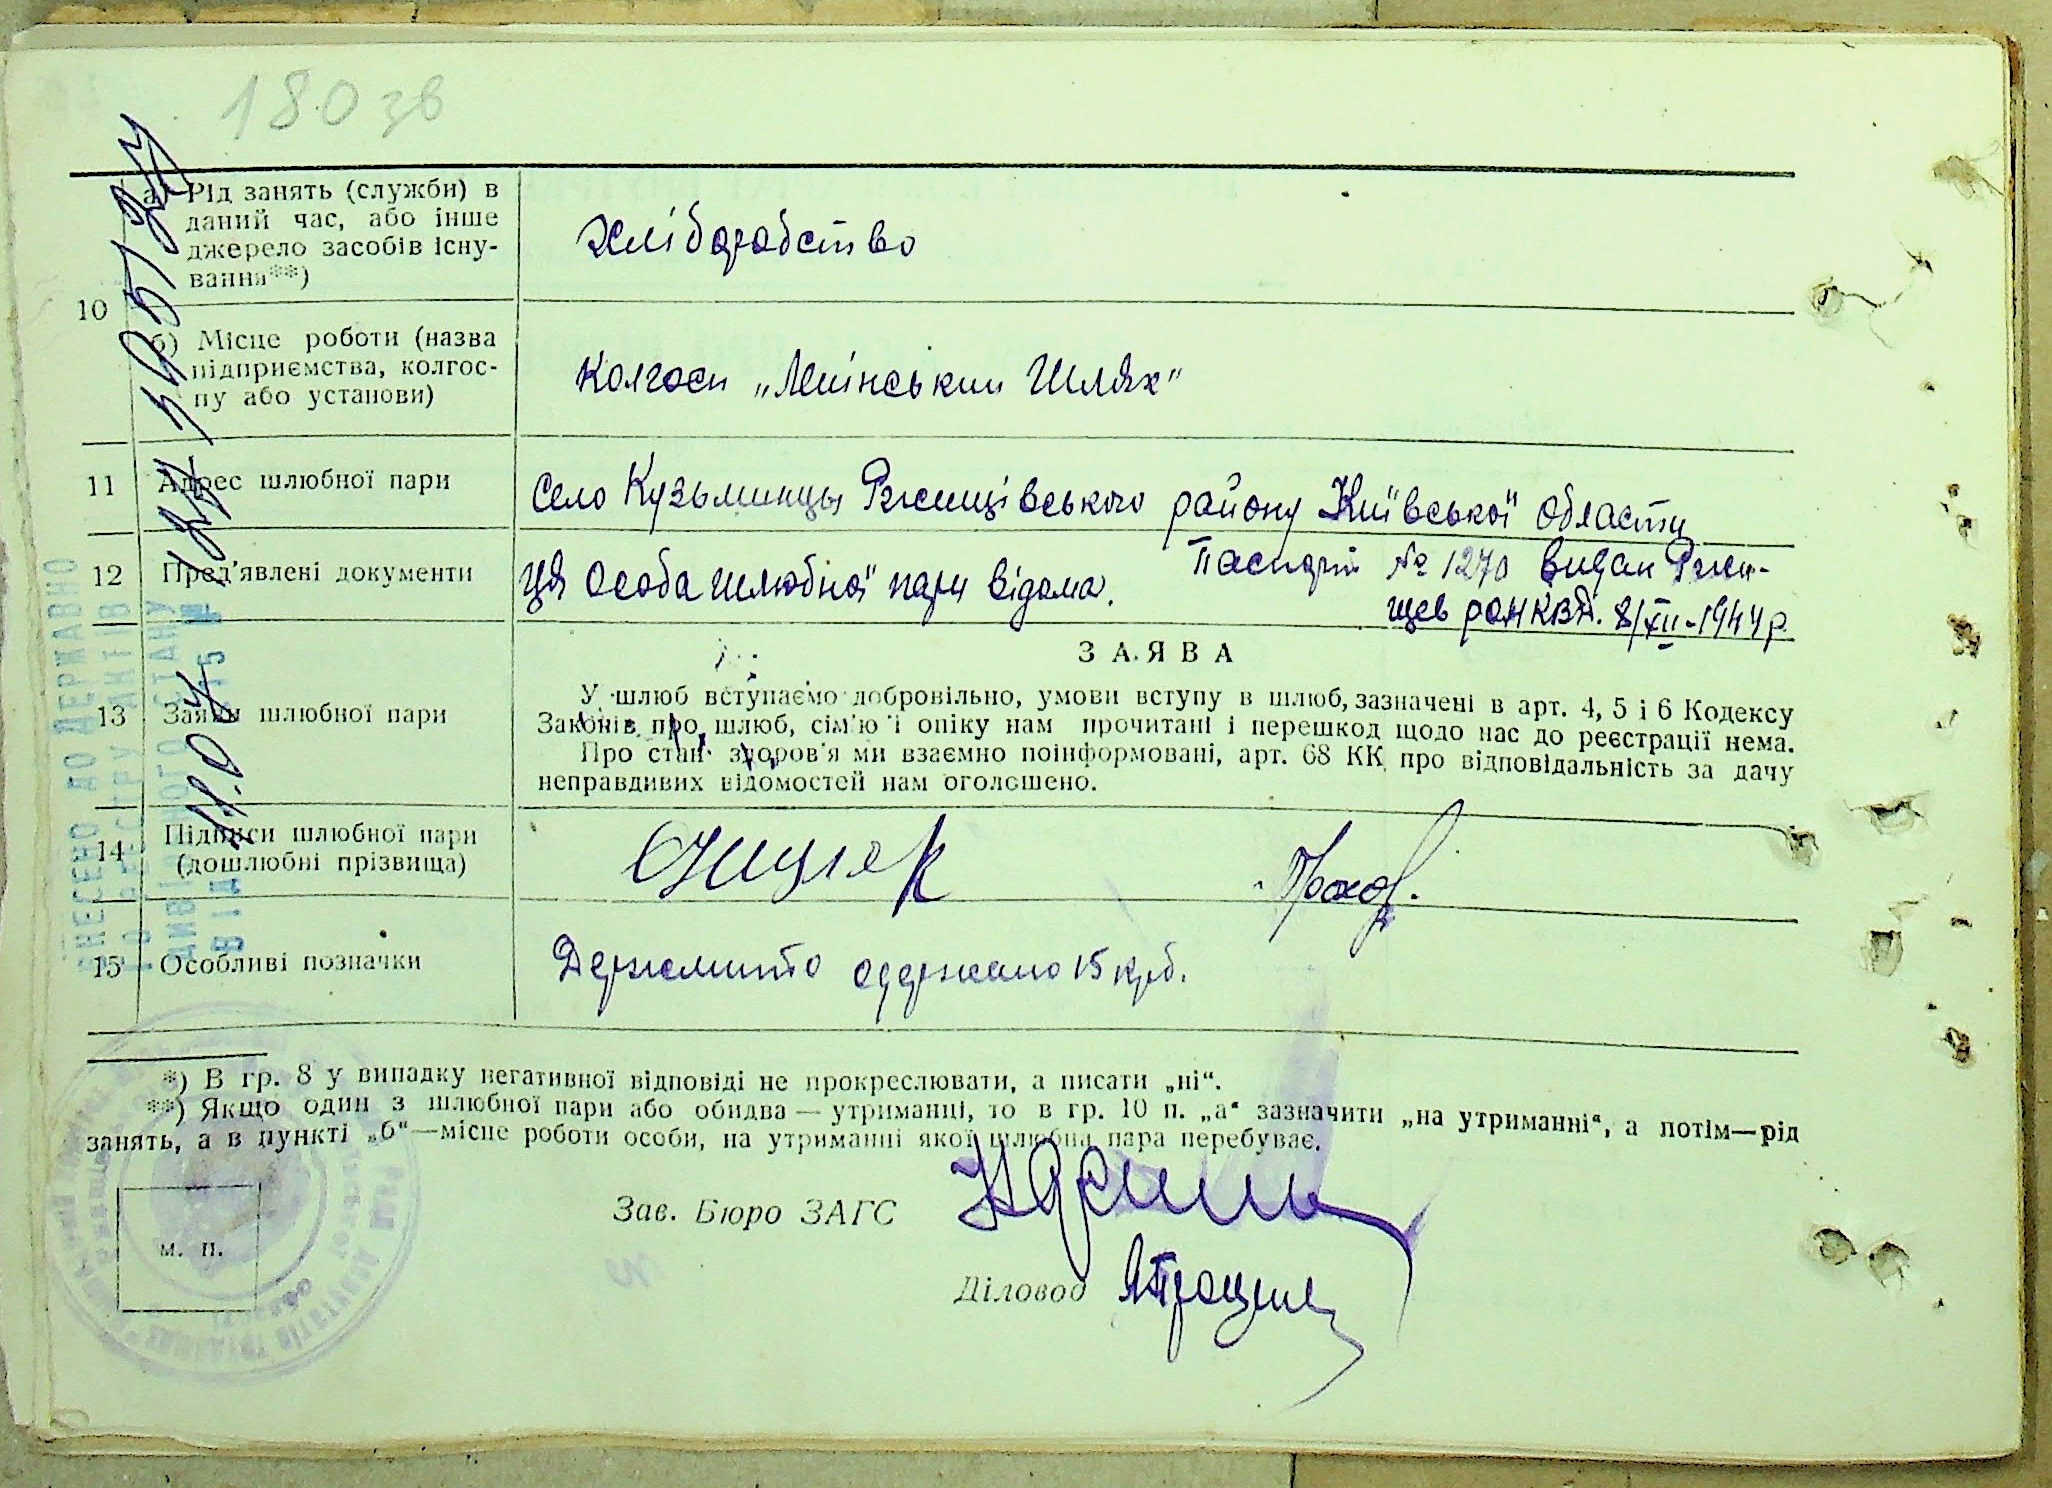 180 зв
а) Рід занять (служби) в
даний час, або інше
джерело засобів існу-
вання**)
Хліборобство
10
б) Місце роботи (назва
підприємства, колгос-
пу або установи)
Колгосп „Ленінський Шлях"
11 Адрес шлюбної пари
Село Кузьминцы Ржищівського району Київської області
12 Пред'явлені документи
Ця особа шлюбної пари відома.
Паспорт № 1270 видан Ржи-
щев РОНКВД. 8/XII-1944 р.
13 Заяви шлюбної пари
ЗАЯВА
У шлюб вступаємо добровільно, умови вступу в шлюб, зазначені в арт. 4, 5 і 6 Кодексу
Законів про шлюб, сім'ю і опіку нам прочитані і перешкод щодо нас до реєстрації нема.
Про стан здоров'я ми взаємно поінформовані, арт. 68 КК про відповідальність за дачу
неправдивих відомостей нам оголошено.
14 Підписи шлюбної пари
(дошлюбні прізвища)
15 Особливі позначки
Держмито одержано 15 крб.
*) В гр. 8 у випадку негативної відповіді не прокреслювати, а писати „ні“.
**) Якщо один з шлюбної пари або обидва — утриманці, то в гр. 10 п. „а“ зазначити „на утриманні“, а потім—рід
занять, а в пункті „б“—місце роботи особи, на утриманні якої шлюбна пара перебуває.
Зав. Бюро ЗАГС
м. п.
Діловод
ВНЕСЕНО ДО ДЕРЖАВНО
ГО РЕЄСТРУ АКТІВ
ЦИВІЛЬНОГО СТАНУ